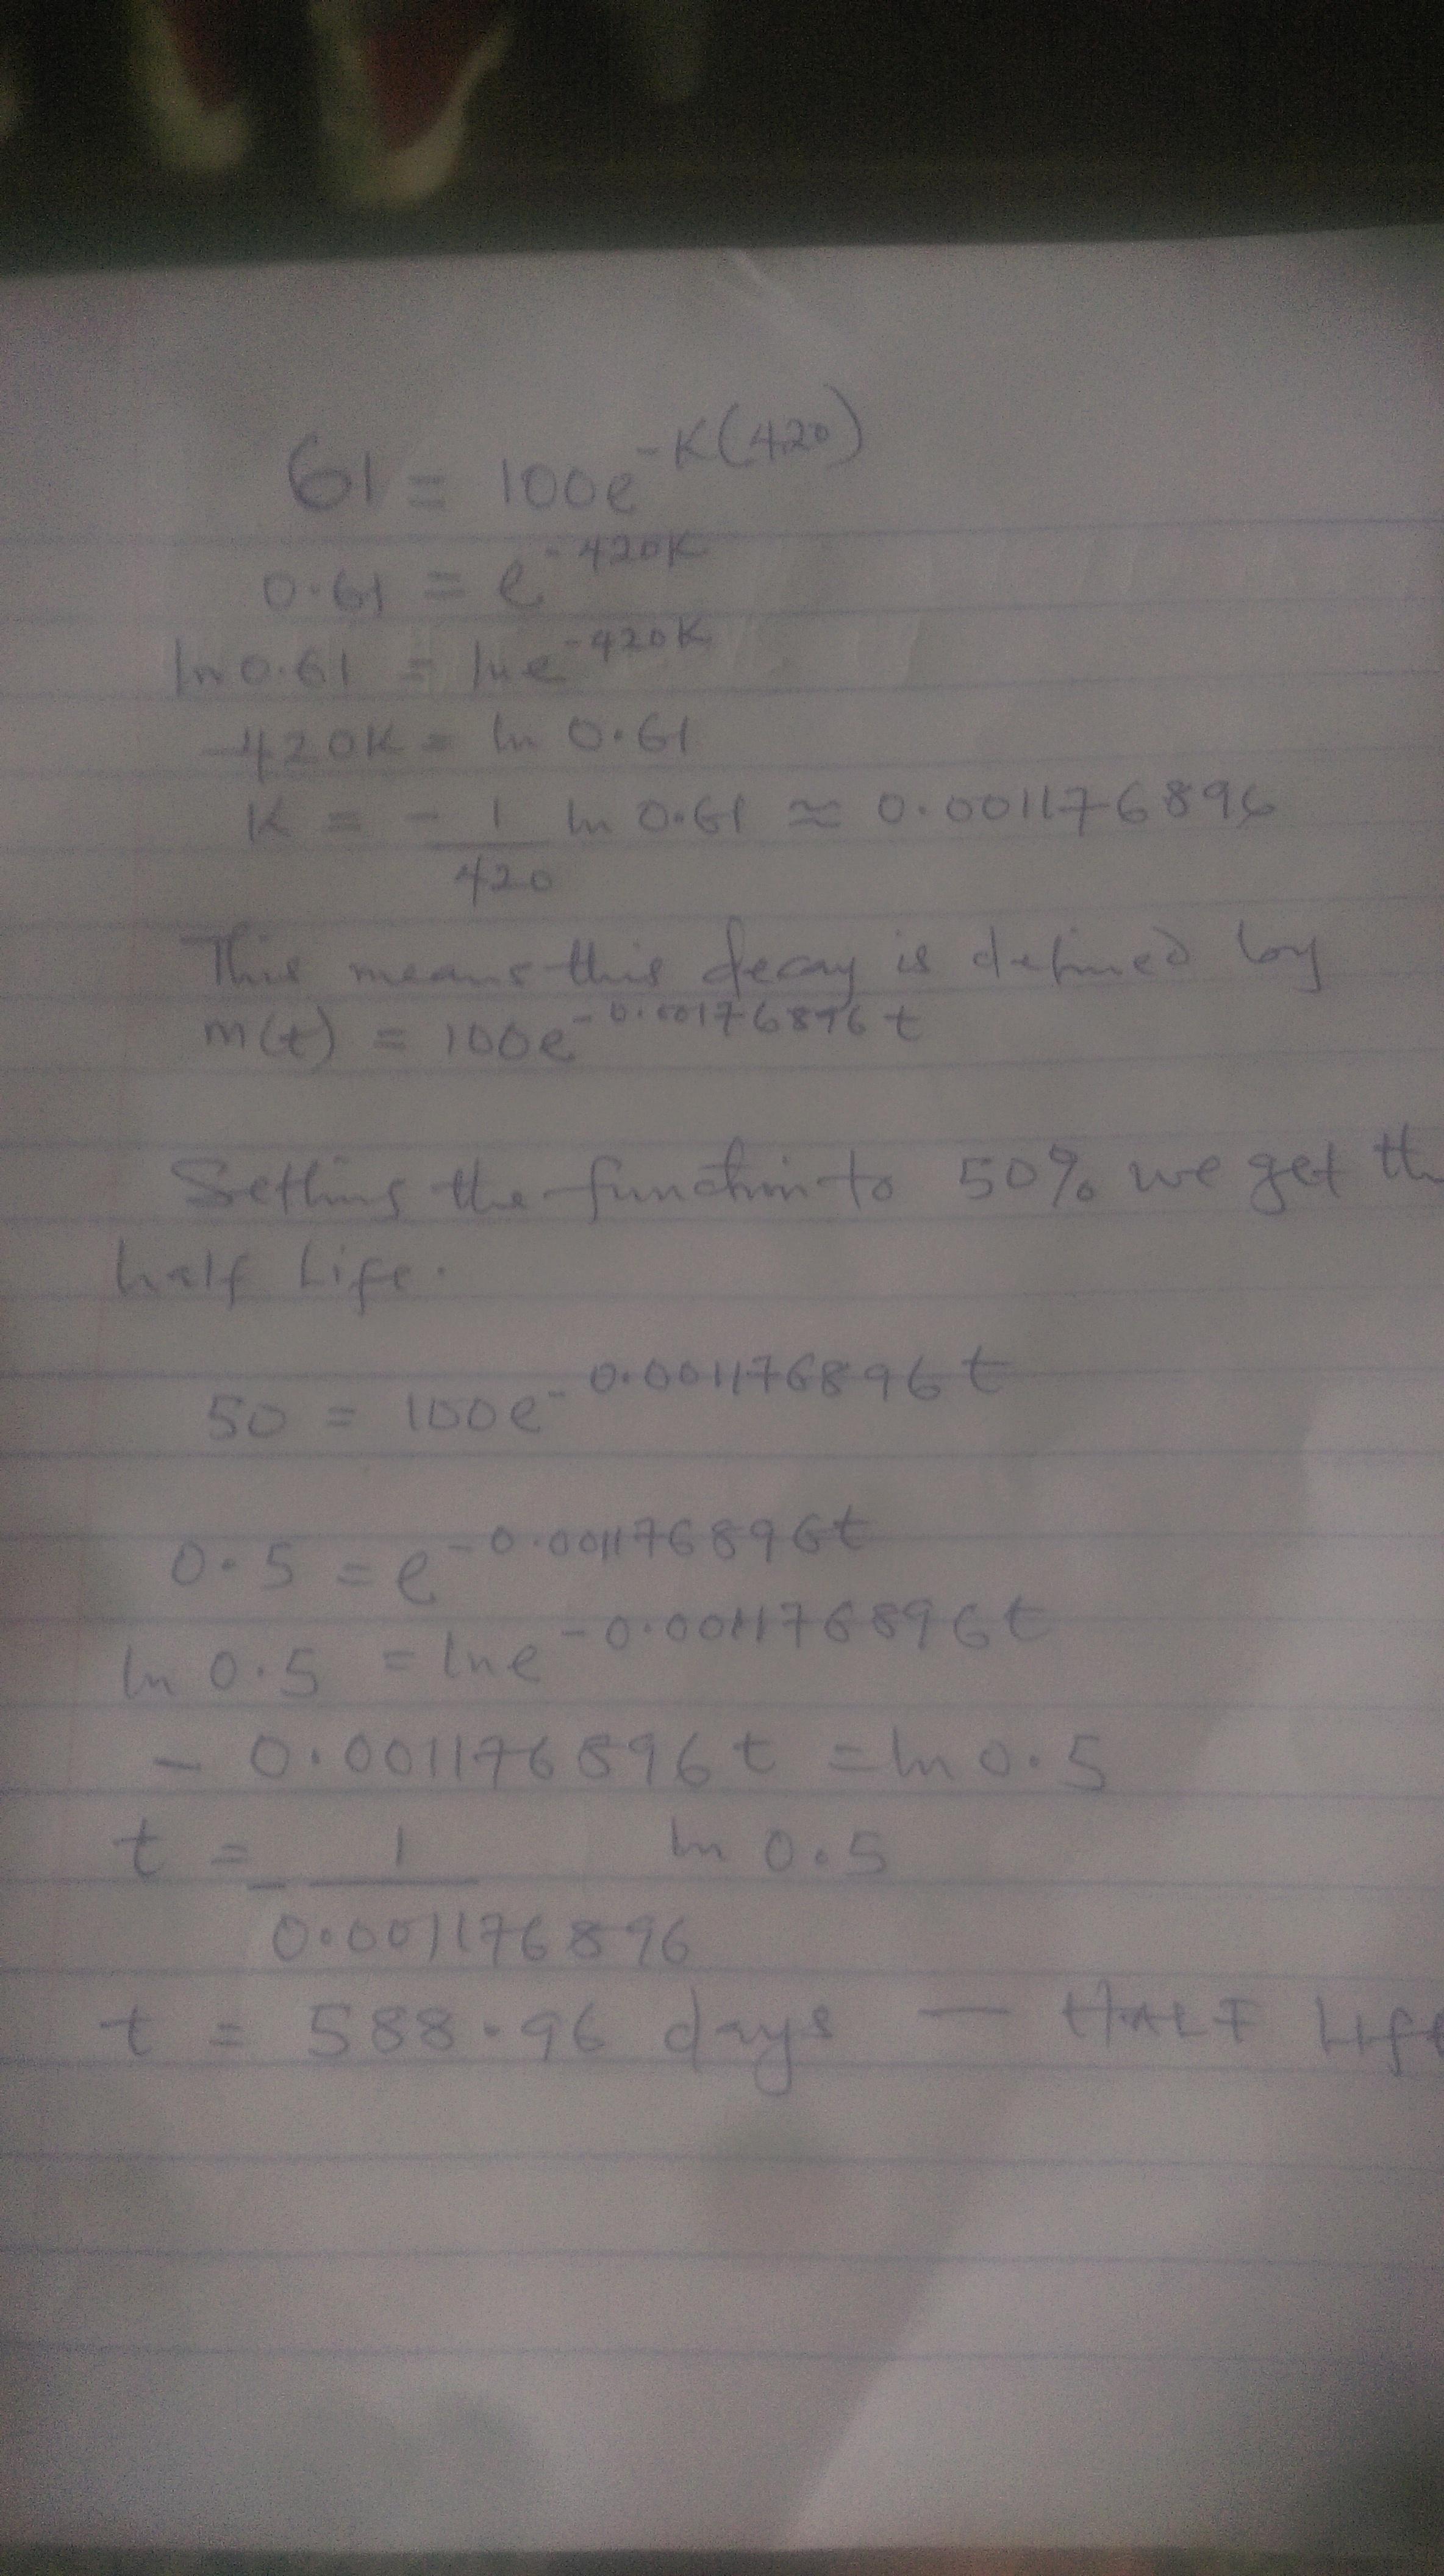 61 = 100e^-K(420)
0.61 = e^-420K
ln 0.61 = ln e^-420K
-420K = ln 0.61
K = - 1/420 ln 0.61 ≈ 0.001176896
This means this decay is defined by
m(t) = 100e^-0.00176896t
Setting the function to 50% we get th
half Life.
50 = 100e^-0.001176896t
0.5 = e^-0.001176896t
ln 0.5 = ln e^-0.001176896t
- 0.001176896t = ln 0.5
t = - 1/0.001176896 ln 0.5
t = 588.96 days — HALF Life